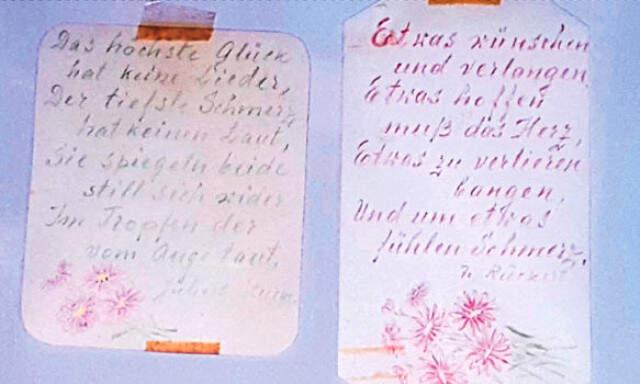 Das höchste Glück
hat keine Lieder,
Der tiefste Schmerz
hat keinen Laut,
Sie spiegeln beide
still sich wider
Im Tropfen der
vom Auge taut,
Julius
Etwas wünschen
und verlangen,
Etwas hoffen
muß das Herz,
Etwas zu verlieren
bangen,
Und um etwas
fühlen Schmerz.
Rückert